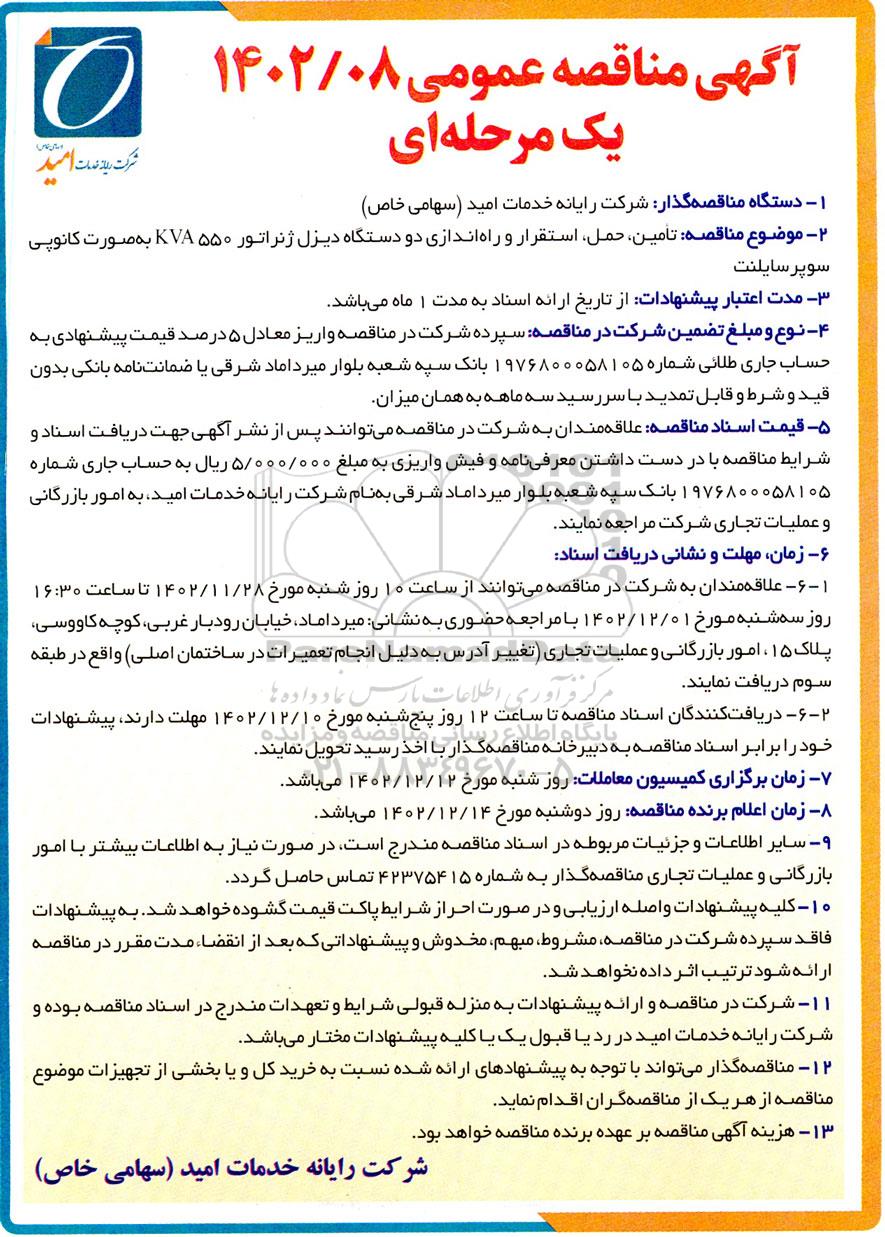 آگهی مناقصه عمومی ۱۴۰۲/۰۸
یک مرحله‌ای
(سهامی خاص)
شرکت رایانه خدمات امید
۱- دستگاه مناقصه‌گذار: شرکت رایانه خدمات امید (سهامی خاص)
۲- موضوع مناقصه: تأمین، حمل، استقرار و راه‌اندازی دو دستگاه دیزل ژنراتور KVA ۵۵۰ به‌صورت کانوپی
سوپرسایلنت
۳- مدت اعتبار پیشنهادات: از تاریخ ارائه اسناد به مدت ۱ ماه می‌باشد.
۴- نوع و مبلغ تضمین شرکت در مناقصه: سپرده شرکت در مناقصه واریز معادل ۵ درصد قیمت پیشنهادی به
حساب جاری طلائی شماره ۱۹۷۶۸۰۰۰۵۸۱۰۵ بانک سپه شعبه بلوار میرداماد شرقی یا ضمانت‌نامه بانکی بدون
قید و شرط و قابل تمدید با سررسید سه ماهه به همان میزان.
۵- قیمت اسناد مناقصه: علاقه‌مندان به شرکت در مناقصه می‌توانند پس از نشر آگهی جهت دریافت اسناد و
شرایط مناقصه با در دست داشتن معرفی‌نامه و فیش واریزی به مبلغ ۵/۰۰۰/۰۰۰ ریال به حساب جاری شماره
۱۹۷۶۸۰۰۰۵۸۱۰۵ بانک سپه شعبه بلوار میرداماد شرقی به‌نام شرکت رایانه خدمات امید، به امور بازرگانی
و عملیات تجاری شرکت مراجعه نمایند.
۶- زمان، مهلت و نشانی دریافت اسناد:
۶-۱- علاقه‌مندان به شرکت در مناقصه می‌توانند از ساعت ۱۰ روز شنبه مورخ ۱۴۰۲/۱۱/۲۸ تا ساعت ۱۶:۳۰
روز سه‌شنبه مورخ ۱۴۰۲/۱۲/۰۱ با مراجعه حضوری به نشانی: میرداماد، خیابان رودبار غربی، کوچه کاووسی،
پلاک ۱۵، امور بازرگانی و عملیات تجاری (تغییر آدرس به دلیل انجام تعمیرات در ساختمان اصلی) واقع در طبقه
سوم دریافت نمایند.
۶-۲- دریافت‌کنندگان اسناد مناقصه تا ساعت ۱۲ روز پنج‌شنبه مورخ ۱۴۰۲/۱۲/۱۰ مهلت دارند، پیشنهادات
خود را برابر اسناد مناقصه به دبیرخانه مناقصه‌گذار با اخذ رسید تحویل نمایند.
۷- زمان برگزاری کمیسیون معاملات: روز شنبه مورخ ۱۴۰۲/۱۲/۱۲ می‌باشد.
۸- زمان اعلام برنده مناقصه: روز دوشنبه مورخ ۱۴۰۲/۱۲/۱۴ می‌باشد.
۹- سایر اطلاعات و جزئیات مربوطه در اسناد مناقصه مندرج است، در صورت نیاز به اطلاعات بیشتر با امور
بازرگانی و عملیات تجاری مناقصه‌گذار به شماره ۴۲۳۷۵۴۱۵ تماس حاصل گردد.
۱۰- کلیه پیشنهادات واصله ارزیابی و در صورت احراز شرایط پاکت قیمت گشوده خواهد شد. به پیشنهادات
فاقد سپرده شرکت در مناقصه، مشروط، مبهم، مخدوش و پیشنهاداتی که بعد از انقضاء مدت مقرر در مناقصه
ارائه شود ترتیب اثر داده نخواهد شد.
۱۱- شرکت در مناقصه و ارائه پیشنهادات به منزله قبولی شرایط و تعهدات مندرج در اسناد مناقصه بوده و
شرکت رایانه خدمات امید در رد یا قبول یک یا کلیه پیشنهادات مختار می‌باشد.
۱۲- مناقصه‌گذار می‌تواند با توجه به پیشنهادهای ارائه شده نسبت به خرید کل و یا بخشی از تجهیزات موضوع
مناقصه از هر یک از مناقصه‌گران اقدام نماید.
۱۳- هزینه آگهی مناقصه بر عهده برنده مناقصه خواهد بود.
شرکت رایانه خدمات امید (سهامی خاص)
ParsNamadData
مرکز فرآوری اطلاعات پارس نماد داده‌ها
پایگاه اطلاع رسانی مناقصه و مزایده
۰۲۱-۸۸۳۴۹۶۷۰-۵